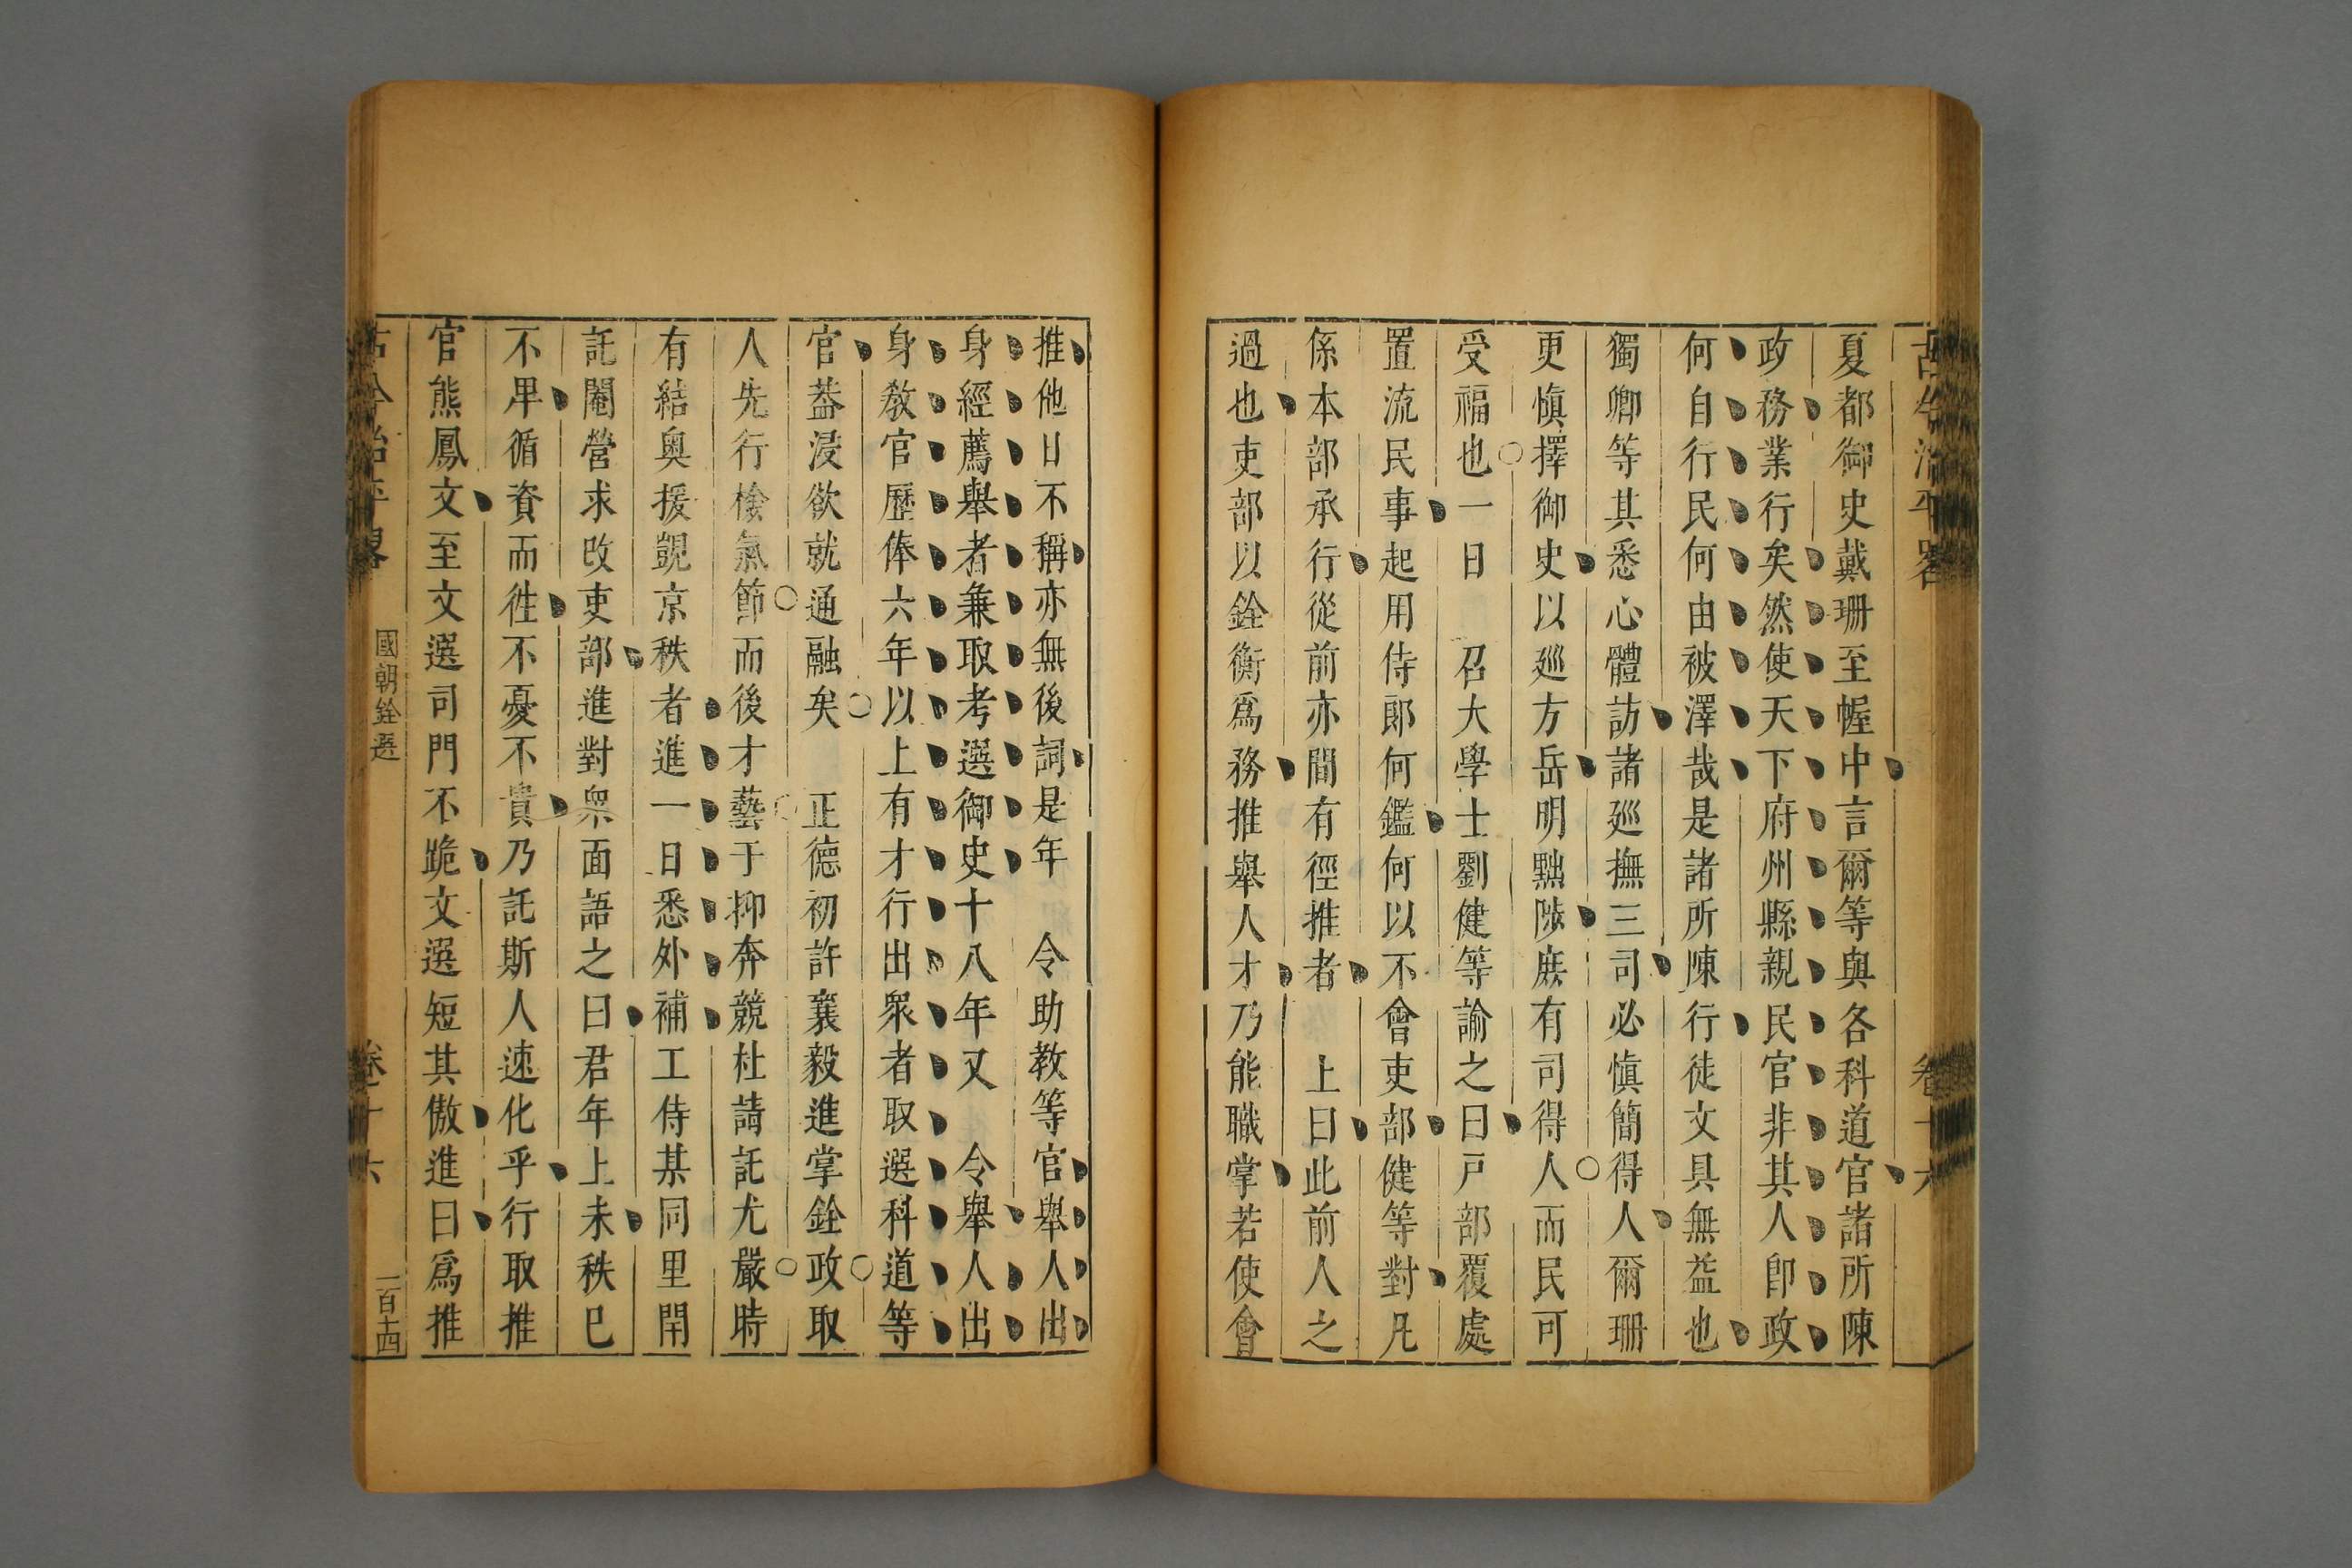 古今治平畧 卷十六
夏都御史戴珊至幄中言爾等與各科道官諸所陳
政務業行矣然使天下府州縣親民官非其人卽政
何自行民何由被澤哉是諸所陳行徒文具無益也
獨卿等其悉心體訪諸廵撫三司必愼簡得人爾珊
更愼擇御史以廵方岳明黜陟庶有司得人而民可
受福也一日 召大學士劉健等諭之曰戶部覆處
置流民事起用侍郎何鑑何以不會吏部健等對凡
係本部承行從前亦間有徑推者 上曰此前人之
過也吏部以銓衡爲務推舉人才乃能職掌若使會
推他日不稱亦無後詞是年 令助教等官舉人出
身經薦舉者兼取考選御史十八年又 令舉人出
身教官歷俸六年以上有才行出衆者取選科道等
官葢浸欲就通融矣 正德初許襄毅進掌銓政取
人先行檢氣節而後才藝于抑奔競杜請託尤嚴時
有結奥援覬京秩者進一日悉外補工侍某同里閈
託閹營求改吏部進對衆面語之曰君年上未秩已
不卑循資而徃不憂不貴乃託斯人速化乎行取推
官熊鳳文至文選司門不跪文選短其傲進曰爲推
古今治平畧 國朝銓選 卷十六 一百十四